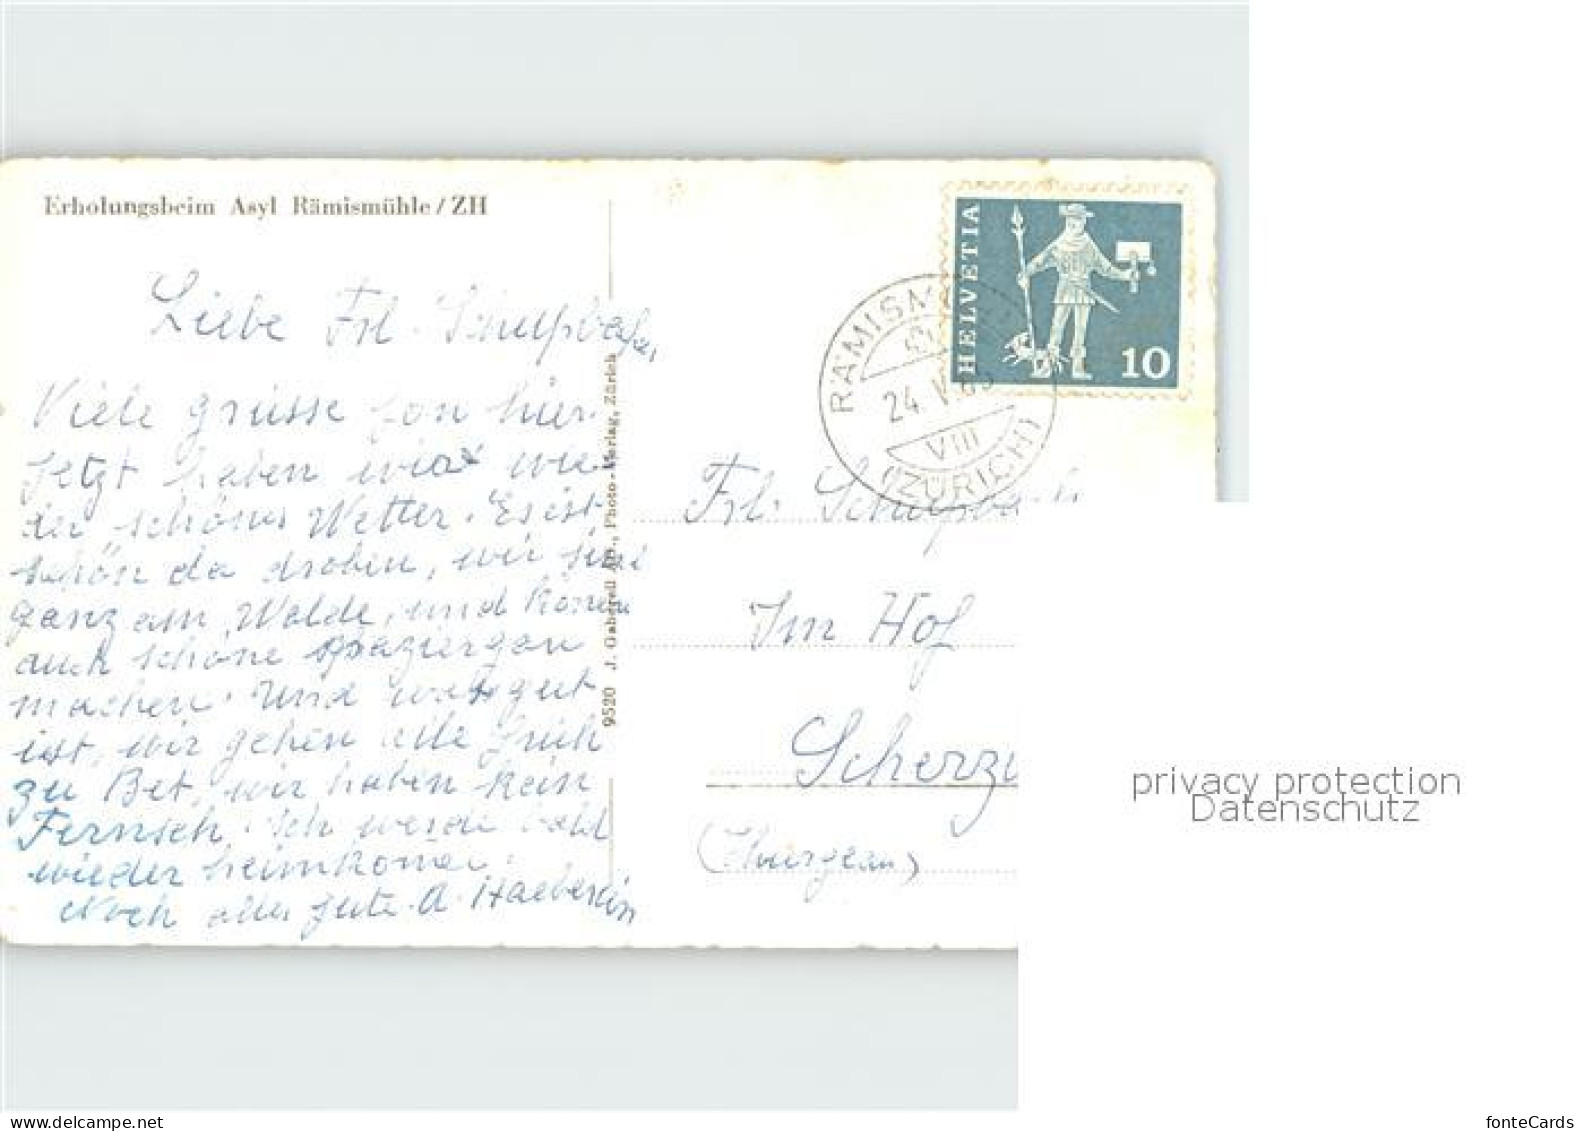 Erholungsheim Asyl Rämismühle / ZH
Liebe Frl. Schupbach,
Viele grüsse fon hier.
Jetzt haben wir wie-
der schönes Wetter. Es ist
schön da droben, wir sind
ganz am Walde, und können
auch schöne spaziergan
machen. Und was gut
ist, wir gehen alle früh
zu Bet, wir haben kein
Fernseh. Ich werde bald
wieder heimkomen.
Noch alles gute. A. Haeberlin
9520 J. Gaberell AG., Photo-Verlag, Zürich
HELVETIA
10
RÄMISM
24. V
VIII
(ZÜRICH)
Frl. Schupbach
Im Hof
Scherzi
(Thurgau)
privacy protection
Datenschutz
www.delcampe.net
fonteCards